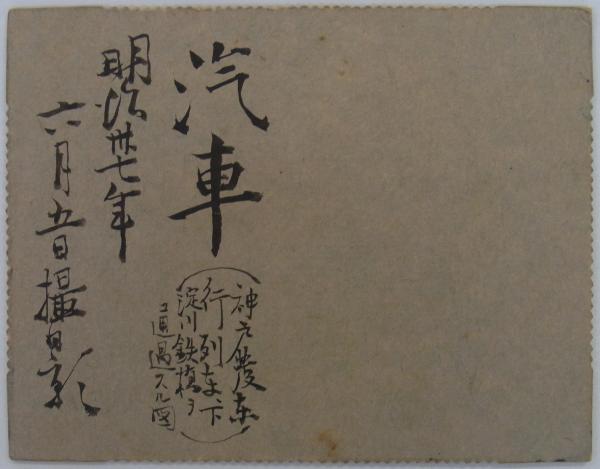 汽車
(神戸發東
行列車下
淀川鉄橋ヲ
通過スル図)
明治卅七年
六月五日撮影